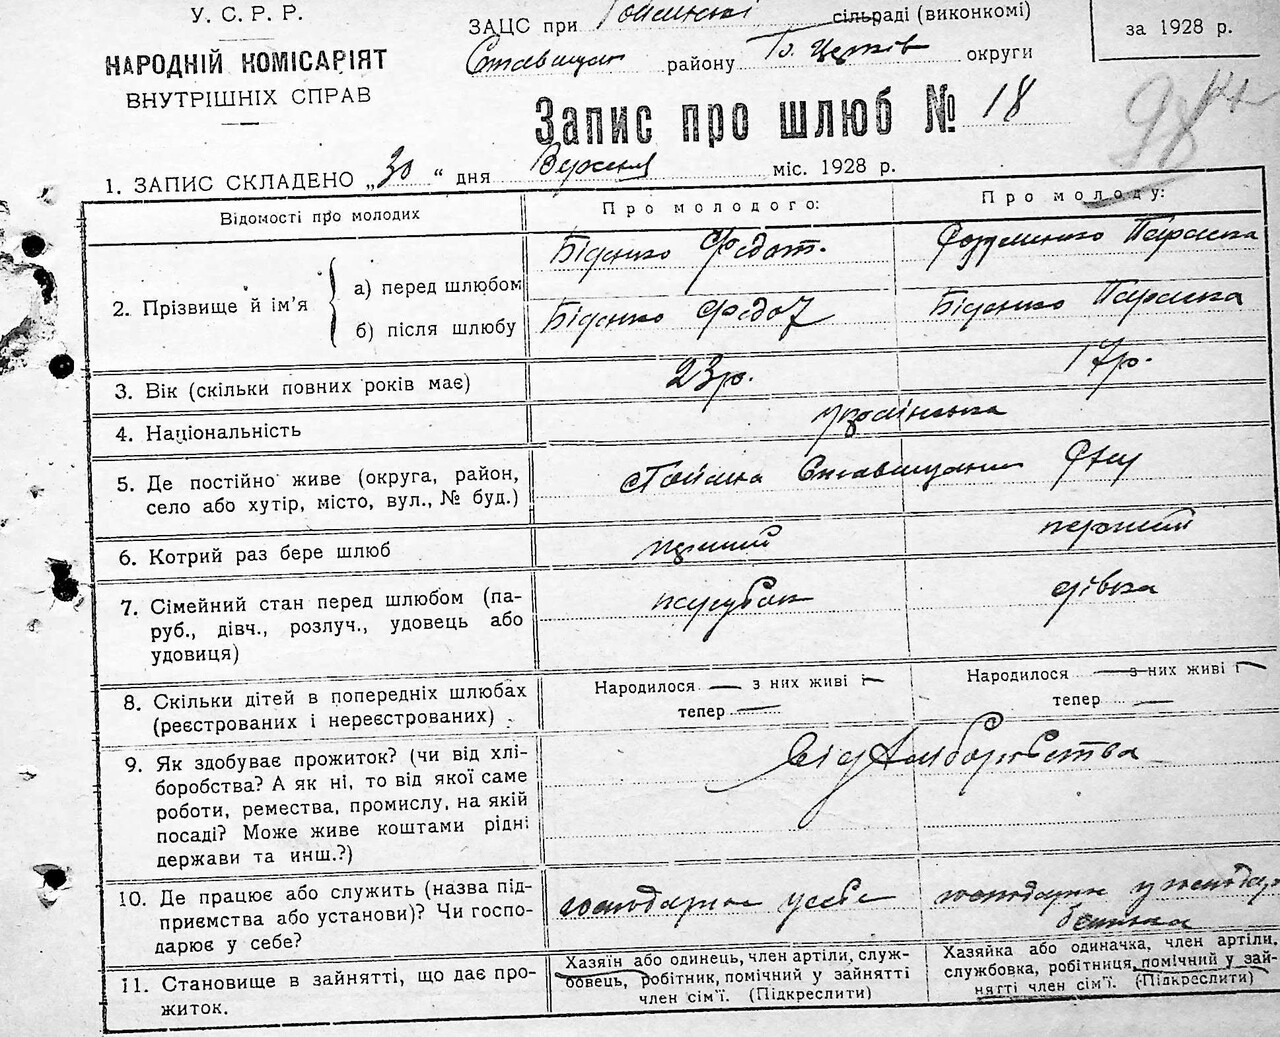 У. С. Р. Р.
НАРОДНІЙ КОМІСАРІЯТ
ВНУТРІШНІХ СПРАВ
ЗАЦС при сільраді (виконкомі)
району Б. Церків округи
за 1928 р.
Запис про шлюб № 18
98
1. ЗАПИС СКЛАДЕНО „30“ дня Вересня міс. 1928 р.
Відомості про молодих
Про молодого:
Про молоду:
2. Прізвище й ім'я
а) перед шлюбом
Біденко Федот.
Параска
б) після шлюбу
Біденко Федот
Біденко Параска
3. Вік (скільки повних років має)
23р.
17р.
4. Національність
українська
5. Де постійно живе (округа, район,
село або хутір, місто, вул., № буд.)
6. Котрий раз бере шлюб
перший
перший
7. Сімейний стан перед шлюбом (па-
руб., дівч., розлуч., удовець або
удовиця)
парубок
дівка
8. Скільки дітей в попередніх шлюбах
(реєстрованих і нереєстрованих)
Народилося — з них живі і —
тепер —
Народилося — з них живі і —
тепер —
9. Як здобуває прожиток? (чи від хлі-
боробства? А як ні, то від якої саме
роботи, ремества, промислу, на якій
посаді? Може живе коштами рідні
держави та инш.?)
від хліборобства
10. Де працює або служить (назва під-
приємства або установи)? Чи госпо-
дарює у себе?
господарює у себе
господарює у господар.
батька
11. Становище в зайнятті, що дає про-
житок.
Хазяїн або одинець, член артілі, служ-
бовець, робітник, помічний у зайнятті
член сім'ї. (Підкреслити)
Хазяйка або одиначка, член артіли,
службовка, робітниця, помічний у зай-
нятті член сім'ї. (Підкреслити)